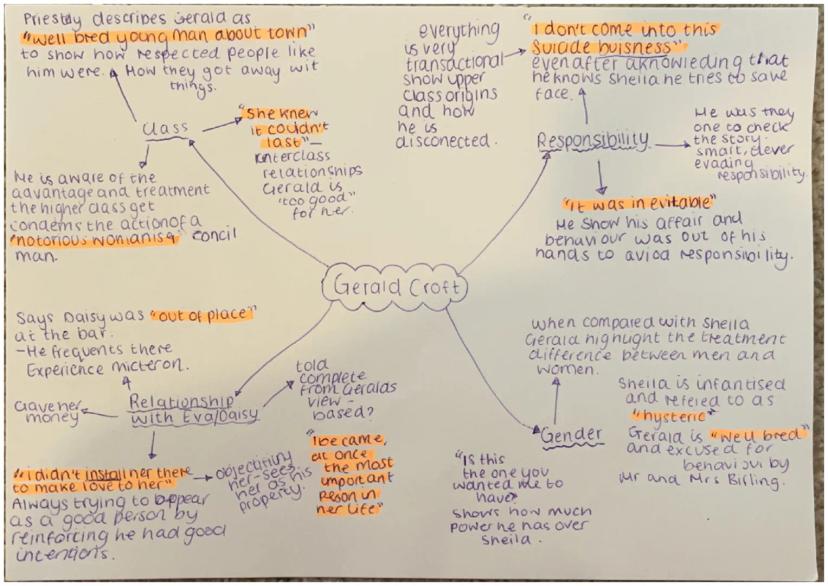 Priestly describes Gerald as
"well bred young man about town"
to show how respected people like
him were. How they got away wit
things.
Class
"She knew
it couldn't
last" –
interclass
relationships
Gerald is
"too good"
for her.
He is aware of the
advantage and treatment
the higher class get
condems the action of a
"notorious womaniser" concil
man.
everything
is very
transactional
show upper
class origins
and how
he is
disconected.
"I don't come into this
suicide buisness"
even after aknowleding that
he knows Sheila he tries to save
face.
Responsibility
He was they
one to check
the story-
smart, clever
evading
responsibility.
"It was inevitable"
He show his affair and
behaviour was out of his
hands to aviod responsibility.
Gerald Croft
Says Daisy was "out of place"
at the bar.
- He frequents there
Experience
Gave her
money
Relationship
with Eva/Daisy
told
complete
from Geralds
view -
based?
"i didn't install her there
to make love to her"
Always trying to appear
as a good person by
reinforcing he had good
intentions.
objectifing
her - sees
her as his
property.
"I became,
at once
the most
important
person in
her life"
when compared with Sheila
Gerald highlight the treatment
difference between men and
women.
Gender
Sheila is infantised
and refered to as
"hysteric"
Gerald is "well bred"
and excused for
behaviour by
Mr and Mrs Birling.
"Is this
the one you
wanted me to
have"
shows how much
power he has over
Sheila.